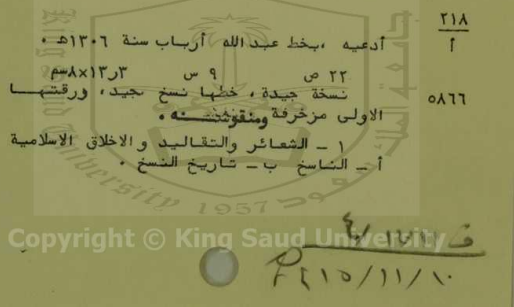 ٢١٨
أ
أدعيه ،بخط عبدالله أرباب سنة ١٣٠٦هـ .
٢٢ ص ٩ س ١٣٫٣×٨سم
٥٨٦٦
نسخة جيدة، خطها نسخ جيد، ورقتها
الاولى مزخرفة ومنقوشه .
١ ـ الشعائر والتقاليد و الاخلاق الاسلامية
أ ـ الناسخ ب ـ تاريخ النسخ .
1957
Copyright © King Saud University
١٠/١١/٢١٥